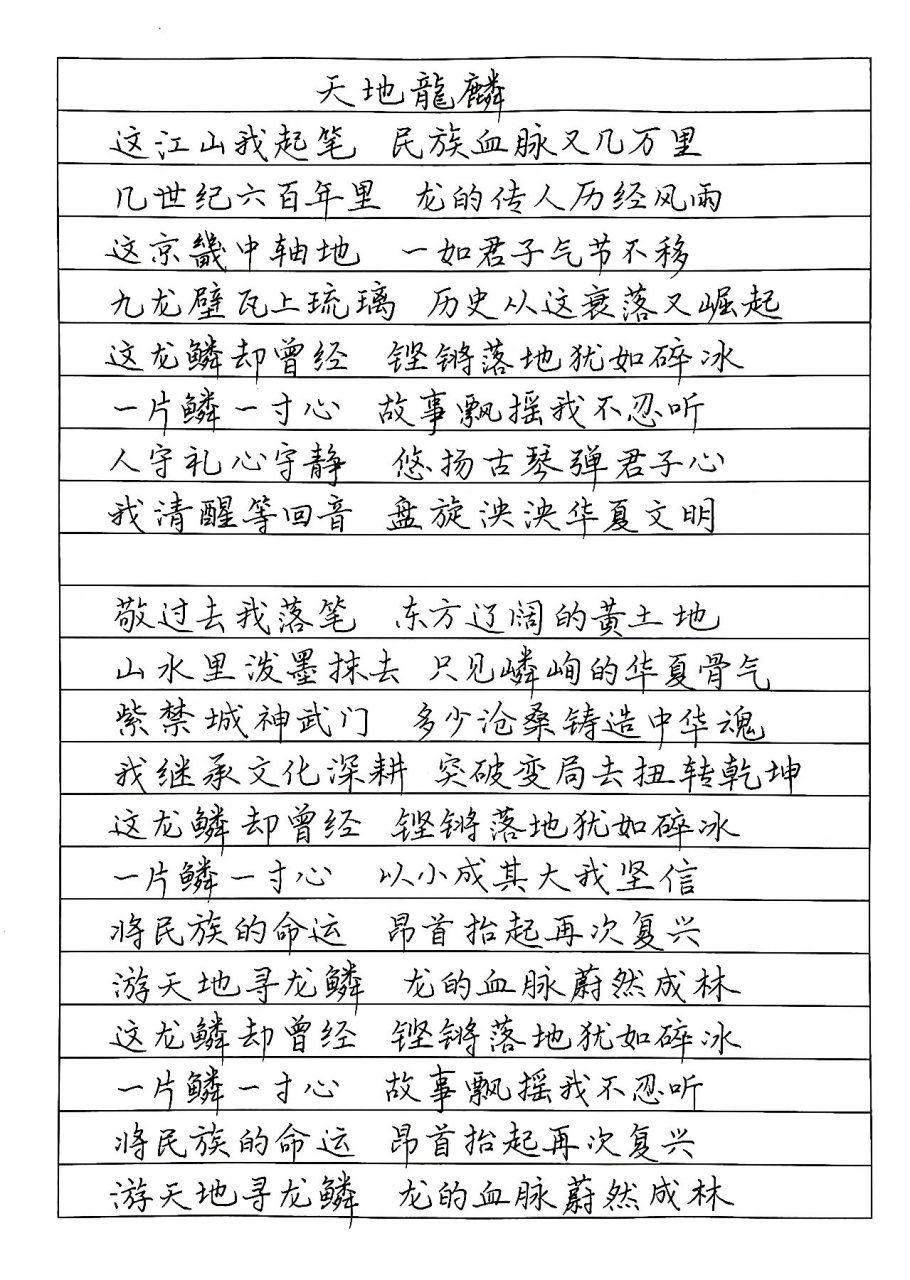 天地龍麟
这江山我起笔 民族血脉又几万里
几世纪六百年里 龙的传人历经风雨
这京畿中轴地 一如君子气节不移
九龙壁瓦上琉璃 历史从这衰落又崛起
这龙鳞却曾经 铿锵落地犹如碎冰
一片鳞一寸心 故事飘摇我不忍听
人守礼心守静 悠扬古琴弹君子心
我清醒等回音 盘旋泱泱华夏文明
敬过去我落笔 东方辽阔的黄土地
山水里泼墨抹去 只见嶙峋的华夏骨气
紫禁城神武门 多少沧桑铸造中华魂
我继承文化深耕 突破变局去扭转乾坤
这龙鳞却曾经 铿锵落地犹如碎冰
一片鳞一寸心 以小成其大我坚信
将民族的命运 昂首抬起再次复兴
游天地寻龙鳞 龙的血脉蔚然成林
这龙鳞却曾经 铿锵落地犹如碎冰
一片鳞一寸心 故事飘摇我不忍听
将民族的命运 昂首抬起再次复兴
游天地寻龙鳞 龙的血脉蔚然成林